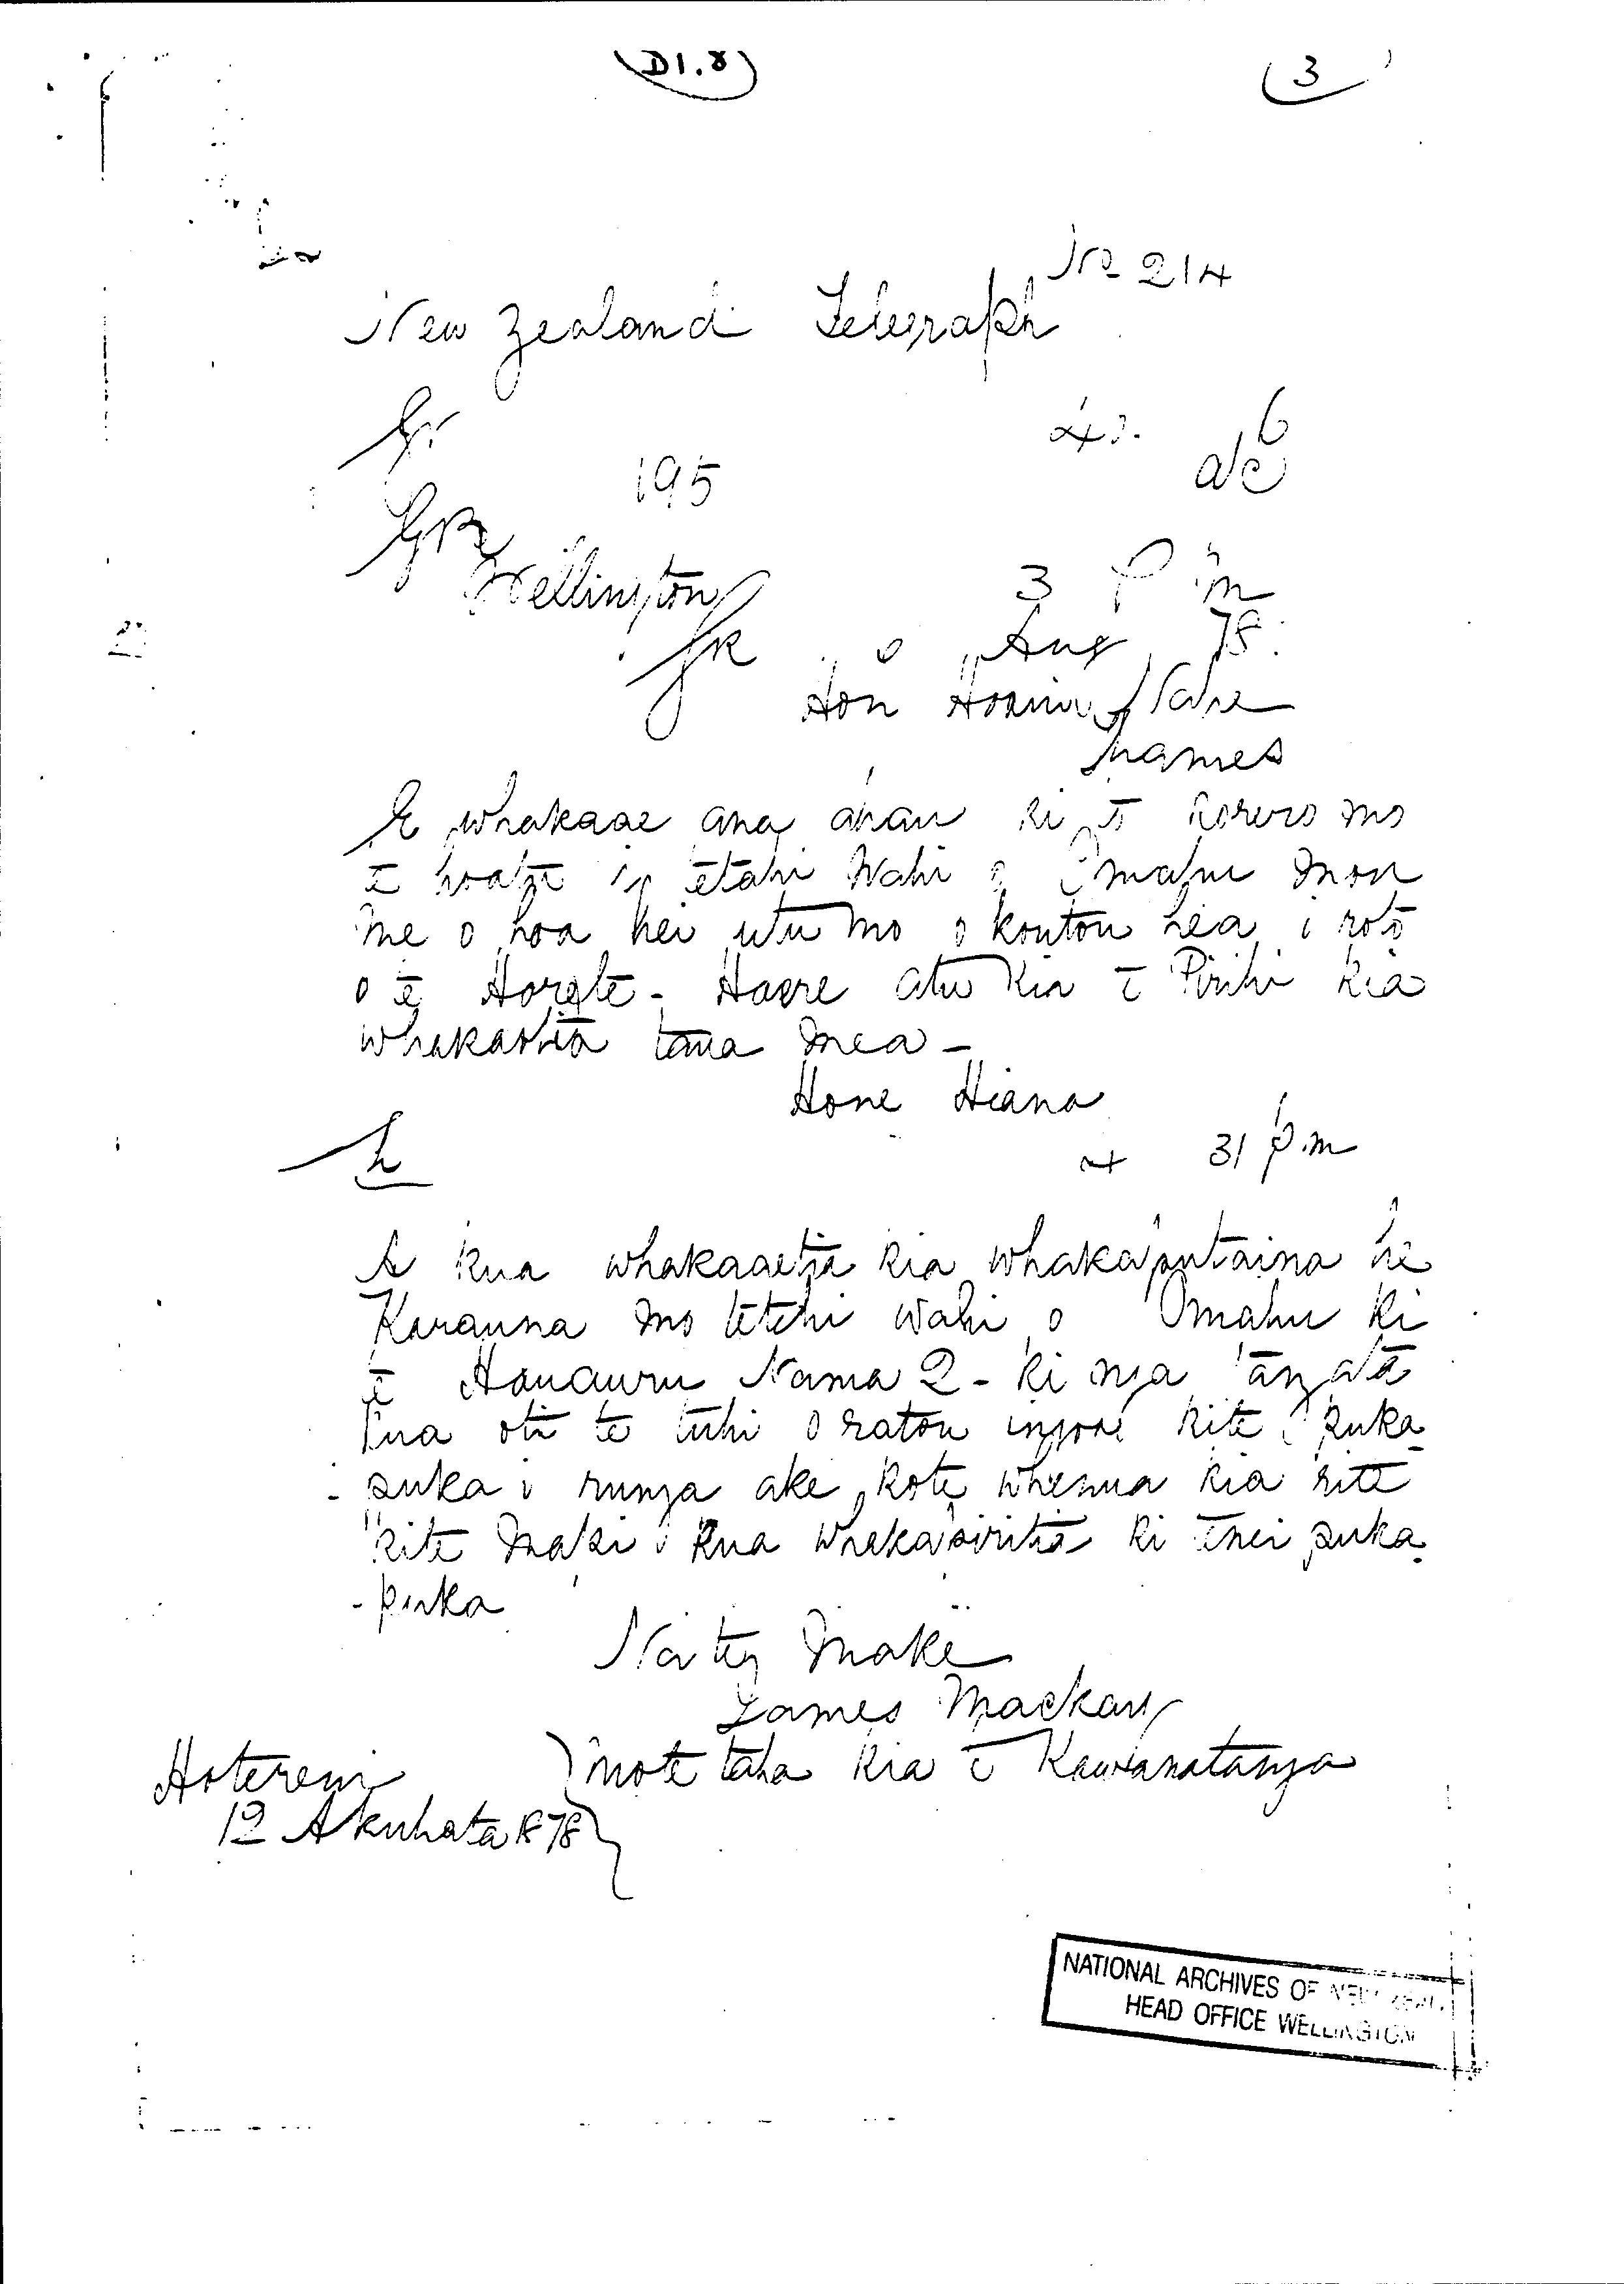 D1.8
3
No 214
New Zealand Telegraph
195
Wellington 3 P m
Aug 78
Hon Hoani Nahe
Thames
E whakaae ana ahau ki to korero mo
te hoatu i etahi Wahi o Omahu mou
me o hoa hei utu mo o koutou hea i roto
o te Horete - Haere atu kia te Pirihi kia
whakaotia tana mea -
Hone Hiana
31 p.m
A kua whakaaetia kia whakaputaina he
Karauna mo tetehi wahi o Omahu ki
te Hauauru Nama 2 - ki nga tangata
kua oti te tuhi o ratou ingoa kite puka
-puka i runga ake kote whenua kia rite
kite Mapi kua whakapiritia ki tenei puka
-puka
Na te Make
James Mackay
mote taha kia te Kawanatanga
Hotereni
12 Akuhata 1878
NATIONAL ARCHIVES OF NEW
HEAD OFFICE WELLINGTON